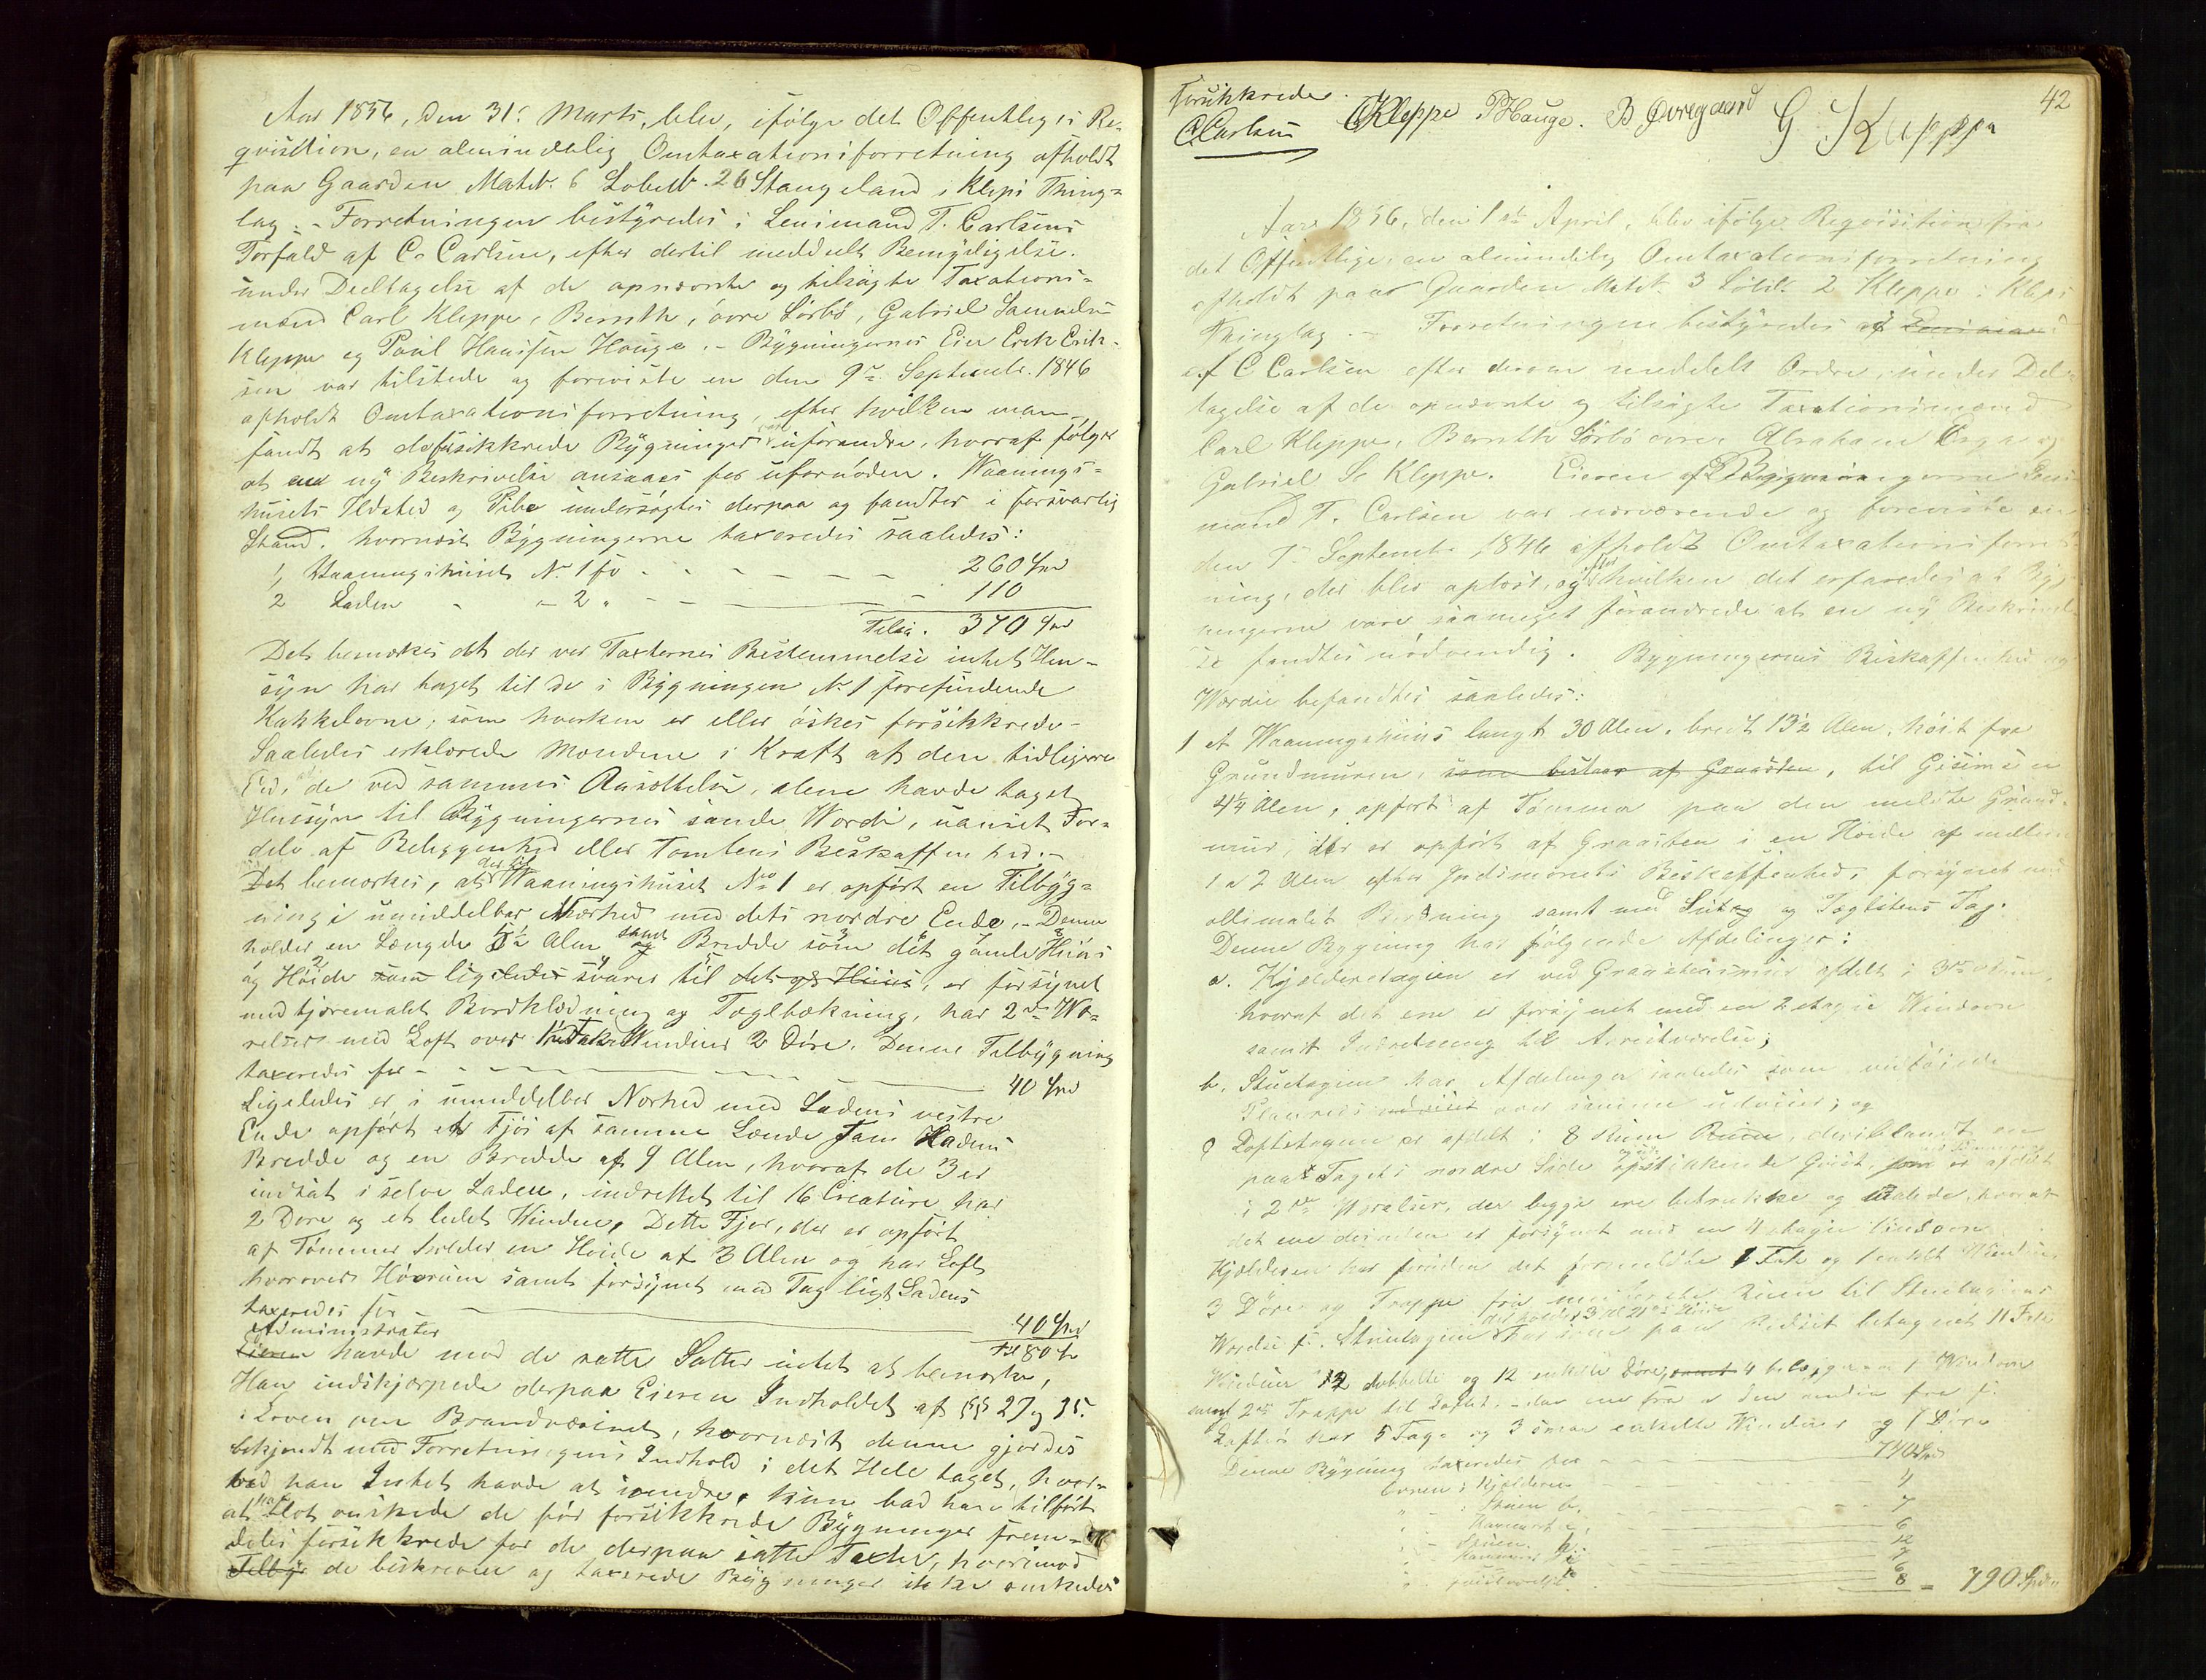 Aar 1856, den 31te Marts, blev, ifølge det Offentliges Re-
qvisition, en almindelig Omtaxationsforretning afholdt
paa Gaarden Matr. 6 Løbenr. 26 Stangeland i Kleps Thing-
lag. - Forretningen bestyredes i Lensmand T. Carlsens
Forfald af C. Carlsen, efter dertil meddeelt Bemyndigelse.
under Deeltagelse af de opnævnte og tilsagte Taxations-
mænd Carl Kleppe, Bernth, øvre Sørbø, Gabriel Samuelsen
Kleppe og Povil Haavsen Houge. - Bygningernes Eier Erik Erik-
sen var tilstede og foreviiste en den 9de Septembr. 1846
afholdt Omtaxationsforretning, efter hvilken man
fandt at de forsikkrede Bygninger uforandre, hvoraf følger
at en ny Beskrivelse ansaaes for ufornøden. Waanings-
husets Ildsted og Pibe undersøgtes derpaa og fandtes i forsvarlig
Stand. hvornæst Bygningerne taxeredes saaledes:
1, Waaningshuset No 1 for - - - - - 260 Spd
2 Laden - - 2 " - - - 110
Tilsa. 370 Spd
Det bemærkes at der ved Taxternes Bestemmelse intet Hen-
syn har taget til de i Bygningen No 1 forefindende
Kakkelovne, som hverken er eller øskes forsikkrede -
Saaledes erklærede Mændene i Kraft af den tidligere
Eed, at de ved sammes Ansættelse, alene havde taget
Hensyn til Bygningernes sande Værdi, uanset For-
dele af Beliggenhed eller Tomtens Beskaffenhed. -
Det bemærkes, at der til Waaningshuset No 1 er opført en Tilbyg-
ning i umiddelbar Nærhed med dets nordre Ende. - Denne
holder en Længde 5½ Alen samt og Bredde som det gamle Huus
og Høide som ligeledes svarer til det gl Huus, er forsynet
med tjæremalet Bordklædning og Tagltækning, har 2de Wæ-
relser med Loft over 1 Fakkes Winduer 2 Døre. Denne Tilbygning
taxeredes for - - - - 40 Spd
Ligeledes er i umiddelbar Nærhed med Ladens vestre
Ende opført et Fjøs af samme Længde som Ladens
Bredde og en Bredde af 9 Alen, hvoraf de 3 er
indtat i selve Laden, indrettet til 16 Creature har
2 Døre og et ledet Windue. Dette Fjøs, der er opført
af Tømmer holder en Høide af 3 Alen og har Loft
hvorover Høerum samt forsynet med Tag ligt Ladens
taxeredes for - - - 40 Spd
Administrator Tils 80 "
Eieren havde mod de satte Satter intet at bemærke,
Han indskjærpede derpaa Eieren Indholdet af §§ 27 og 35.
i Loven om Brandvæsenet, hvornæst denne gjordes
bekjendt med Forretningens Indhold i det Hele taget, hvor-
ved han Intet havde at erindre, kun bad han tilført
at han blot ønskede de før forsikkrede Bygninger frem-
deles forsikkrede for de derpaa satte Taxter, hvorimod
Tilbyg de beskrevne og taxerede Bygninger ikke ønskedes
42
forsikkrede.
C Carlsen CKleppe PHauge. B Øvregaard G S Kleppe
Aar 1856, den 1ste April, blev ifølge Reqvisition fra
det Offentlige, en almindelig Omtaxationsforretning
afholdt paa Gaarden Matr. 3 Løbnr. 2 Kleppe i Kleps
Thinglag. - Forretningen bestyredes af Lensmand
af C Carlsen efter derom meddelt Ordre, under Del-
tagelse af de opnævnte og tilsagte Taxationsmænd
Carl Kleppe, Bernth Sørbø øvre, Abraham Erga og
Gabriel S. Kleppe. Eieren af Bygningerne Lens
mand T. Carlsen var nærværende og foreviste en
den 7de Septembr 1846 afholdt Omtaxationsforret
ning, der blev oplæst, og efter hvilken det erfaredes at Byg-
ningerne vare saameget forandrede at en ny Beskrivel-
se fandtes nødvendig. Bygningernes Beskaffenhed og
Værdie befandtes saaledes:
1 et Waaningshuus langt 30 Alen. bredt 13½ Alen, høit fra
Grundmuren, som bestaar af Graasten, til Gesimsen
4¼ Alen, opført af Tømmer paa den meldte Grund-
muur, der er opført af Graasten i en Høide af mellem
1 a 2 Alen efter Jordsmonets Beskaffenhed, forsynet med
ollimalet Bordklædning samt med Sutag og Taglstens Tag.
Denne Bygning har følgende Afdelinger:
a. Kjelderetagien er ved Graasteensmur afdelt i 3de Rum,
hvoraf det ene er forsynet med en 2 etages Windovn
samt Indretning til Arrestværelse;
b. Stuetagien har Afdelinger saaledes som vedføiede
Planrids udviser over samme udviser; og
c Loftetagien er afdelt i 8 Rum Rum, deriblandt en
paa Tagets nordre Side opstikkende Qvist, som er afdelt
i 2de Værelser, der begge ere betrukke og malede, hvoraf
det ene desuden er forsynet med en 4 etages Vindovn
Kjelderen har foruden det formeldte 1 Fak og 1 enkelt Windue,
3 Døre og Trappe fra Rum til Stuetagiens
Stuetagien har betegnet 11 Fak
Winduer 12 dobbelte og 12 enkelte Døre, samt 4 Windovne
samt 2de Trappe til Loftet, - den ene fra a den anden fra f.
Loftet har 5 Fag. og 3 smaa enkelte Winduer og 1 Dør
Denne Bygning taxeredes for - - - 740 Spd
Ovnen i Kjelderen - - - 4
" Stuen b, - - - 7
" Kammeret e, - - - 6
" Stuen h. - - - 12
" Kammeret i - - - 7
6
8 - 790 Spd